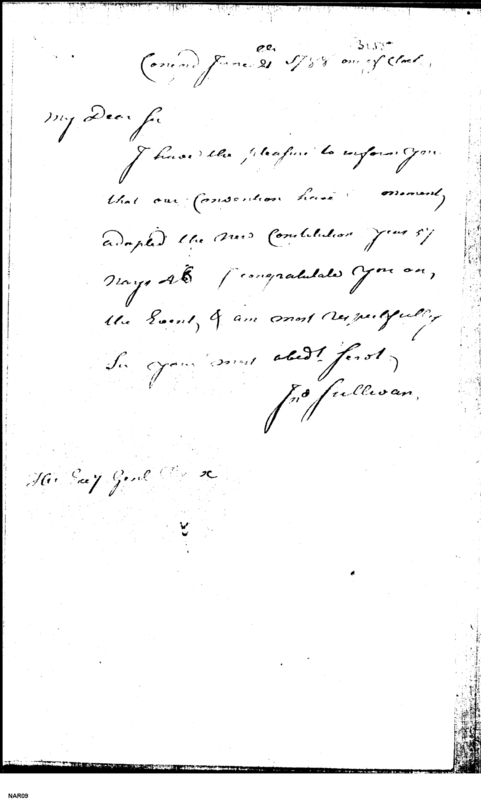 Concord June 21 1788 one of Clock,
My Dear Sir
I have the pleasure to inform you
that our Convention have moment,
adopted the new Constitution Yeas 57
Nays 46 I congratulate you on,
the Event, & am most respectfully
Sir your most obedt. Servt,
Jno Sullivan,
His Exy Genl
NAR09